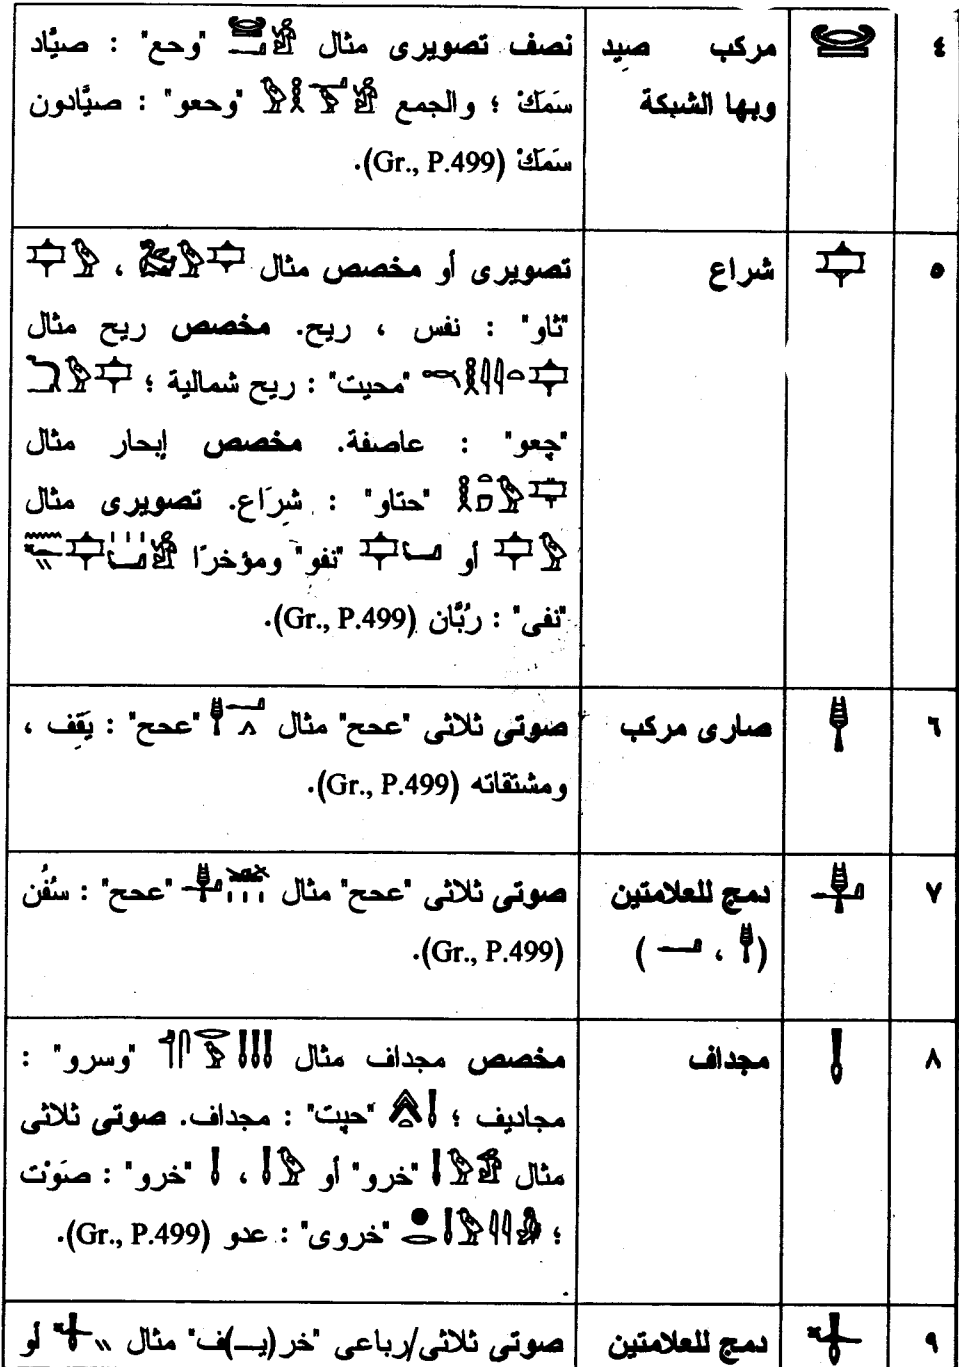 ٤
مركب صيد
وبها الشبكة
نصف تصويرى مثال "وحع" : صيَّاد
سَمَكْ ؛ والجمع "وحعو" : صيَّادون
سَمَكْ (Gr., P.499).
٥
شراع
تصويرى أو مخصص مثال ،
"ثاو" : نفس ، ريح. مخصص ريح مثال
"محيت" : ريح شمالية ؛
"چعو" : عاصفة. مخصص إبحار مثال
"حتاو" : شرَاع. تصويرى مثال
أو "نفو" ومؤخرًا
"نفى" : رُبَّان (Gr., P.499).
٦
صارى مركب
صوتى ثلاثى "عحح" مثال "عحح" : يَقِف ،
ومشتقاته (Gr., P.499).
٧
دمج للعلامتين
( ، )
صوتى ثلاثى "عحح" مثال "عحح" : سُفُن
(Gr., P.499).
٨
مجداف
مخصص مجداف مثال "وسرو" :
مجاديف ؛ "حپت" : مجداف. صوتى ثلاثى
مثال "خرو" أو ، "خرو" : صَوْت
؛ "خروى" : عدو (Gr., P.499).
٩
دمج للعلامتين
صوتى ثلاثى/رباعى "خر(يـ)ف" مثال أو